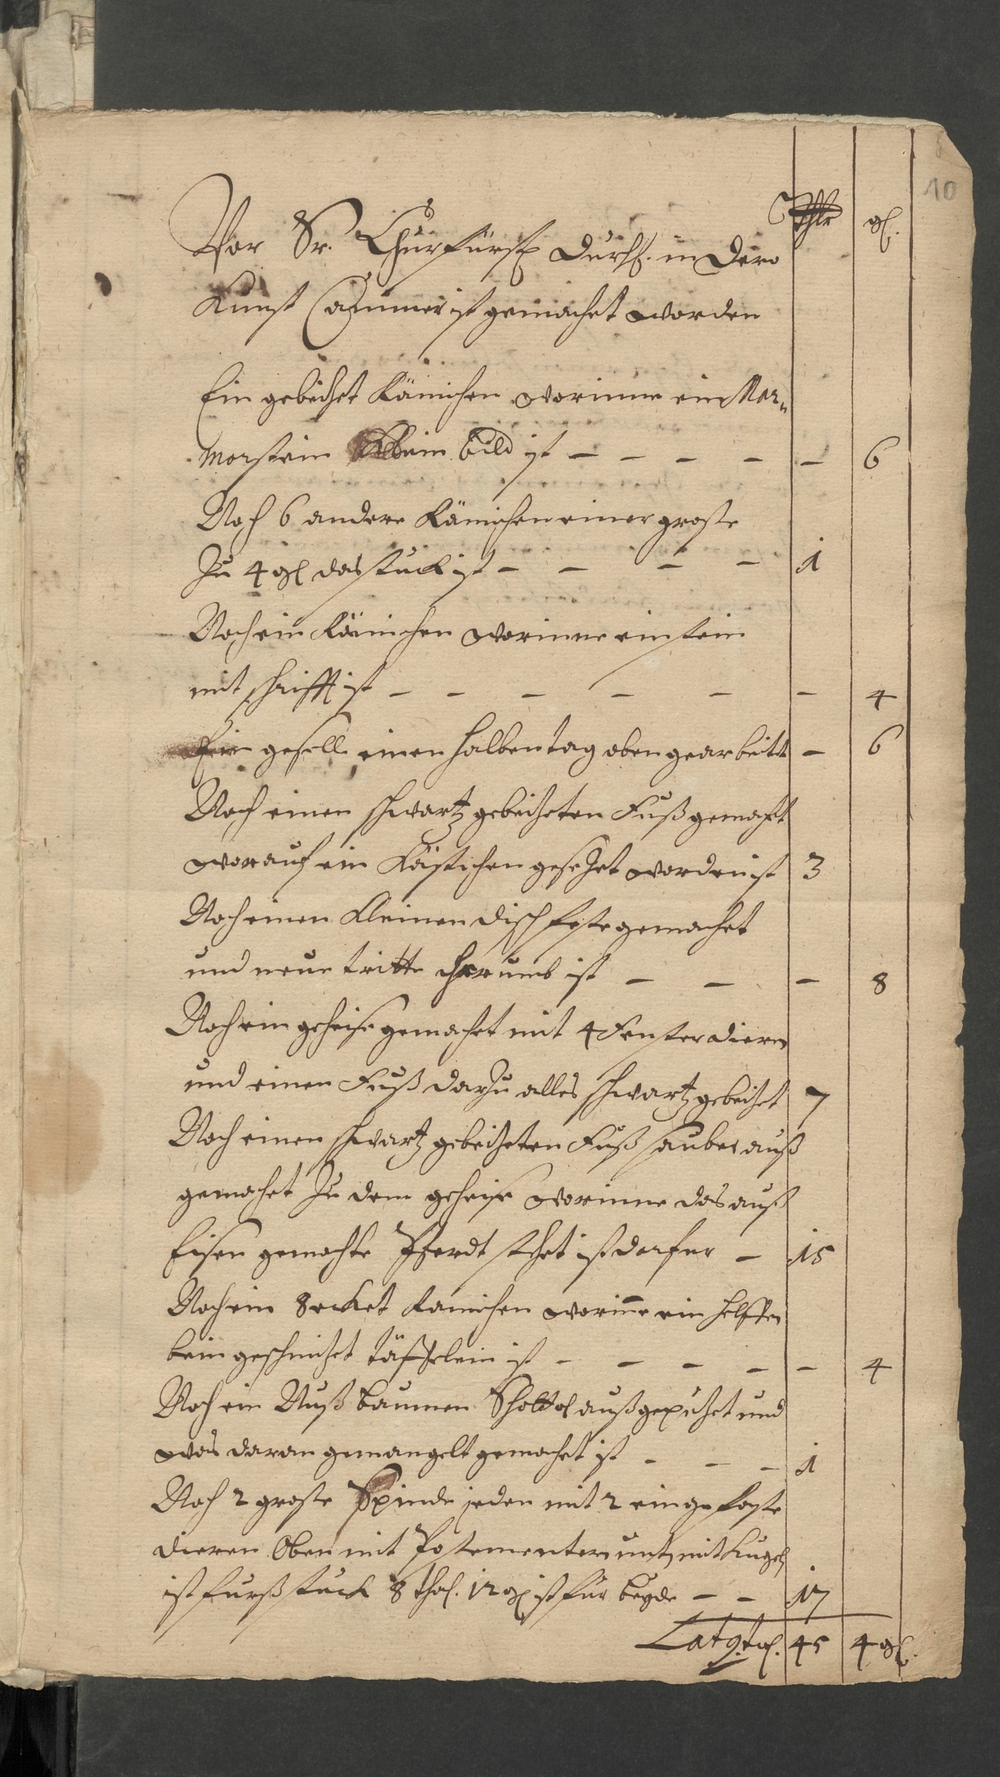 10
Thlr gl.
Vor Sr. Churfürstl Durchl. in Dero
Kunst Cammer ist gemachet worden
Ein gebeitzet Rämichen worinne ein Mar„
morstein klein bild ist — — — — — 6
Noch 6 andere Rämichen einer große
Zu 4 gl das stuck ist — — — — 1
Noch ein Rämichen worinne ein stein
mit schrifft ist — — — — — — 4
Ein gesell einen halben tag oben gearbeitt — 6
Noch einen schwartz gebeitzeten Fuß gemacht
worauf ein Kästichen gesetzet worden ist 3
Noch einen Kleinen disch feste gemachet
und neue tritte herumb ist — — — 8
Noch ein geheise gemachet mit 4 Fenster dieren
und einen Fuß darzu alles schwartz gebeitzet 7
Noch einen schwartz gebeitzeten Fuß sauber auß
gemachet Zu dem geheise worinne das auß
Eisen gemachte Pferdt stehet ist dafur — 15
Noch ein 8 ecket Ramichen worinne ein helffen
bein geschnitzet täffelein ist — — — — — 4
Noch ein Nuß baumen außgeputzet und
was daran gemangelt gemachet ist — — — 1
Noch 2 große Spinde jeden mit 2 eingefaste
dieren Oben mit Postementer unt mit Kugel
ist furß stuck 8 thl. 12 gl ist für beyde — — 17
Lat 45 4 gl.